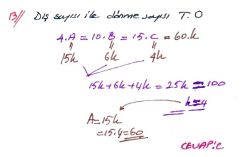 13// Diş sayısı ile dönme sayısı T.O
4.A = 10.B = 15.C = 60.k
15k 6k 4k
15k+6k+4k = 25k = 100
k=4
A=15k
=15.4=60
CEVAP:C